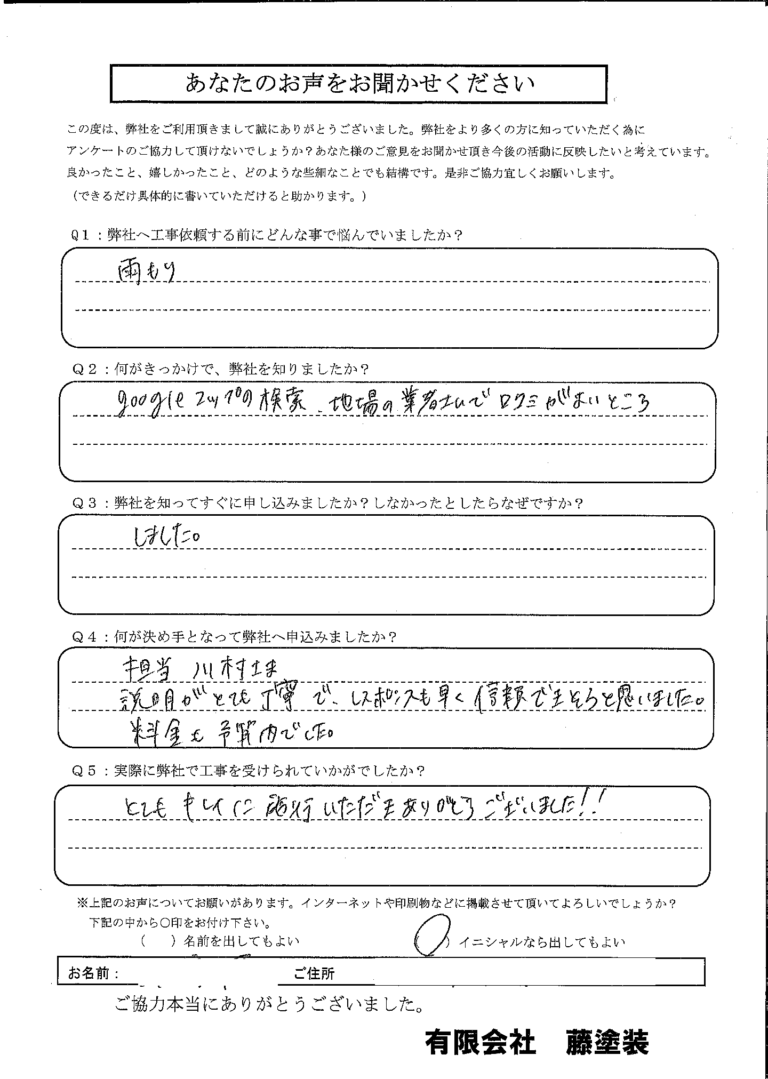 あなたのお声をお聞かせください
この度は、弊社をご利用頂きまして誠にありがとうございました。弊社をより多くの方に知っていただく為に
アンケートのご協力して頂けないでしょうか？あなた様のご意見をお聞かせ頂き今後の活動に反映したいと考えています。
良かったこと、嬉しかったこと、どのような些細なことでも結構です。是非ご協力宜しくお願いします。
（できるだけ具体的に書いていただけると助かります。）
Q１：弊社へ工事依頼する前にどんな事で悩んでいましたか？
雨もり
Q２：何がきっかけで、弊社を知りましたか？
googleマップの検索、地場の業者さんで口クミがよいところ
Q３：弊社を知ってすぐに申し込みましたか？しなかったとしたらなぜですか？
しました。
Q４：何が決め手となって弊社へ申込みましたか？
担当 川村さま
説明がとても丁寧で、レスポンスも早く信頼できそうと思いました。
料金も予算内でした。
Q５：実際に弊社で工事を受けられていかがでしたか？
とてもキレイに施行いただきありがとうございました!!
※上記のお声についてお願いがあります。インターネットや印刷物などに掲載させて頂いてよろしいでしょうか？
下記の中から〇印をお付け下さい。
（　）名前を出してもよい　　　　　　　　　）イニシャルなら出してもよい
お名前：　　　　　　　　　　ご住所
ご協力本当にありがとうございました。
有限会社　藤塗装